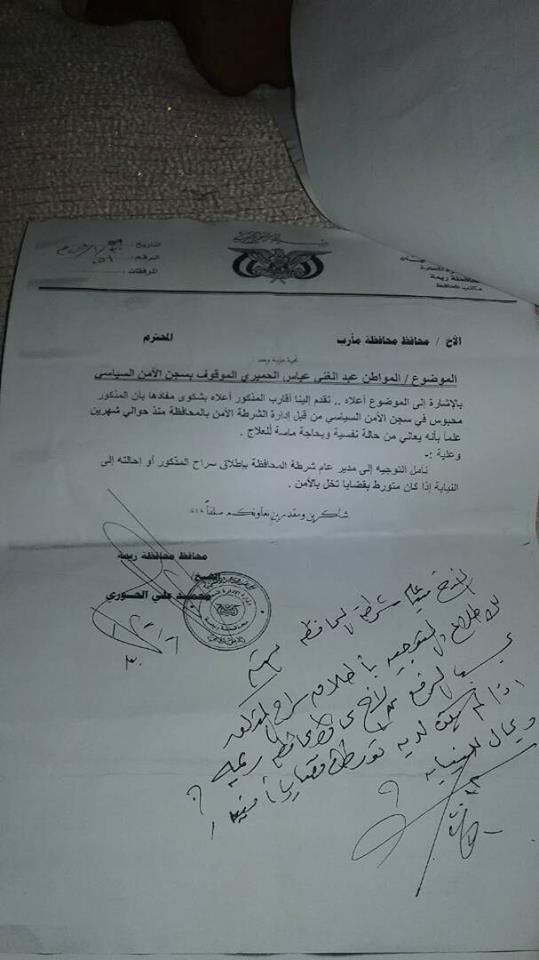 التاريخ:
الرقم:
المرفقات:
محافظة ريمة
مكتب المحافظ
الأخ / محافظ محافظة مأرب المحترم
تحية طيبة وبعد
الموضوع / المواطن عبد الغني عباس الحميري الموقوف بسجن الأمن السياسي
بالإشارة إلى الموضوع أعلاه .. تقدم إلينا أقارب المذكور أعلاه بشكوى مفادها بأن المذكور
محبوس في سجن الأمن السياسي من قبل إدارة الشرطة الأمن بالمحافظة منذ حوالي شهرين
علماً بأنه يعاني من حالة نفسية وبحاجة ماسة للعلاج .
وعلية :-
نأمل التوجيه إلى مدير عام شرطة المحافظة بإطلاق سراح المذكور أو إحالته إلى
النيابة إذا كان متورط بقضايا تخل بالأمن .
شاكرين ومقدرين تعاونكم سلفاً
محافظ محافظة ريمة
الشيخ/
محمد علي الحوري
الأخ مدير عام شرطة المحافظة
للاطلاع والتوجيه بأطلاق سراح
الأخ محافظ محافظة ريمة
اذا لم يكن لديه تورط قضايا أمنية
ويحال للنيابة